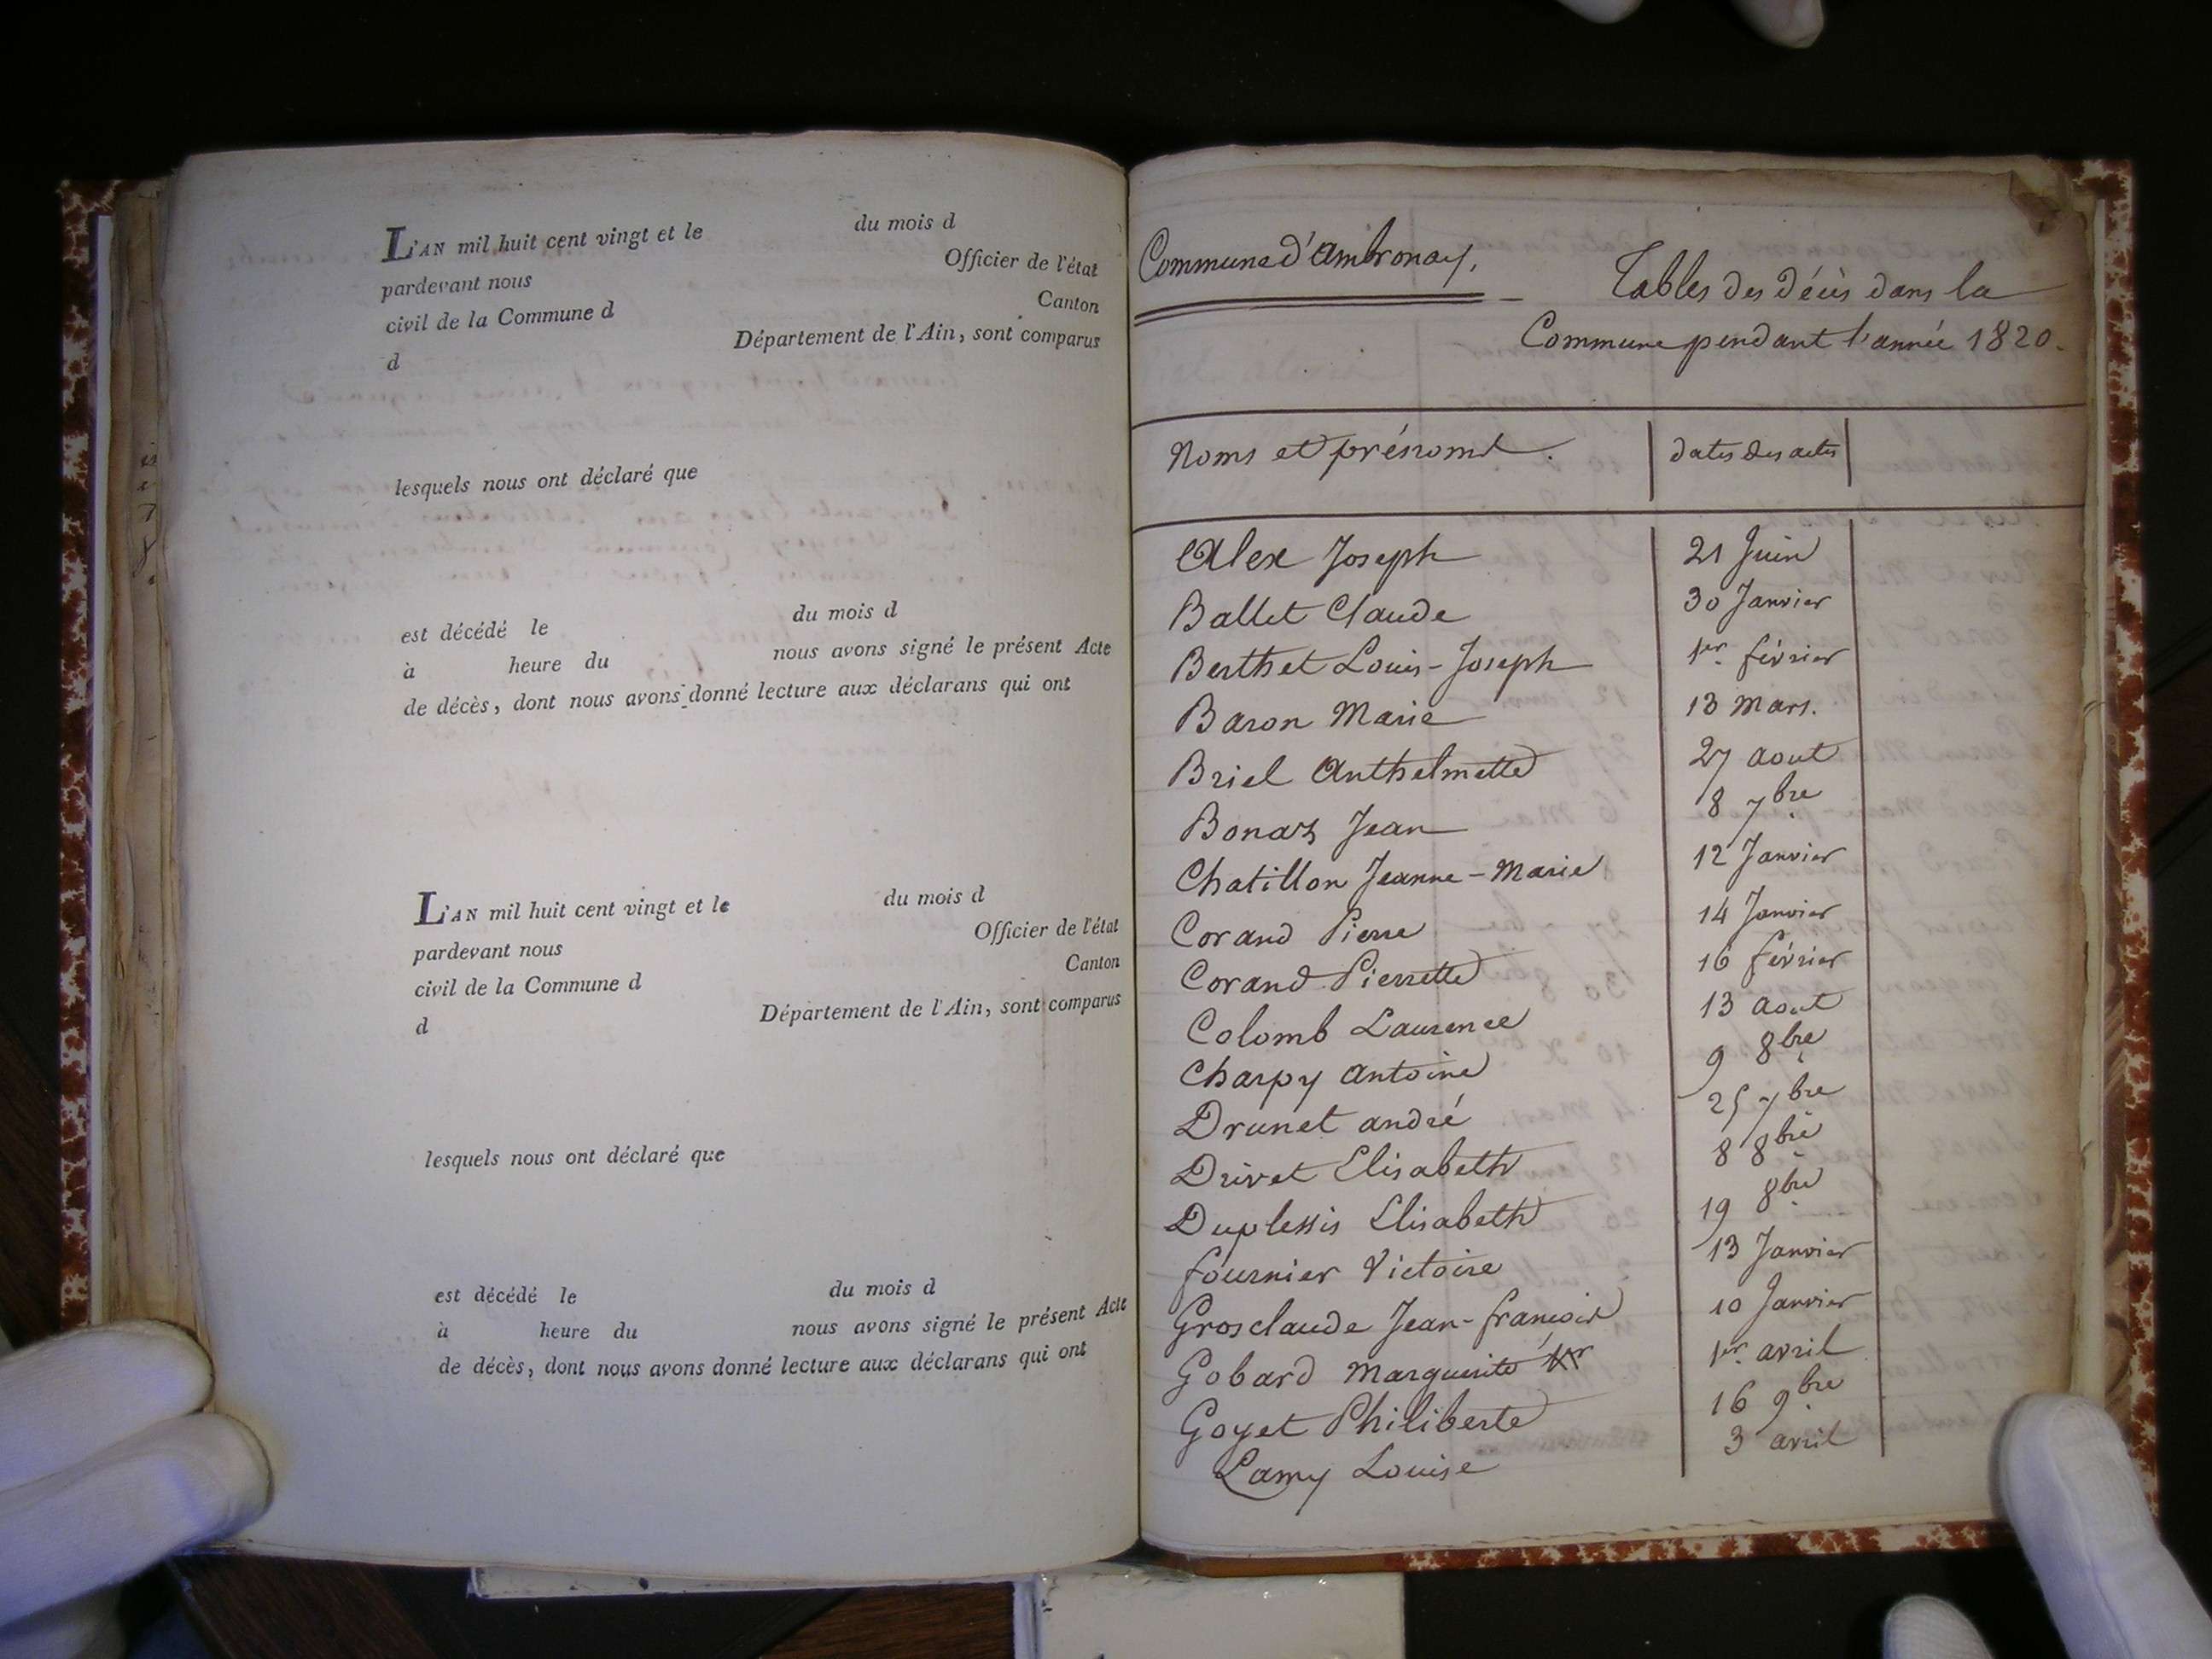 L'AN mil huit cent vingt et le du mois d
pardevant nous Officier de l'état
civil de la Commune d Canton
d Département de l'Ain, sont comparus
lesquels nous ont déclaré que
est décédé le du mois d
à heure du nous avons signé le présent Acte
de décès, dont nous avons donné lecture aux déclarans qui ont
L'AN mil huit cent vingt et le du mois d
pardevant nous Officier de l'état
civil de la Commune d Canton
d Département de l'Ain, sont comparus
lesquels nous ont déclaré que
est décédé le du mois d
à heure du nous avons signé le présent Acte
de décès, dont nous avons donné lecture aux déclarans qui ont
Commune d'Ambronay.
Tables des décès dans la
Commune pendant l'année 1820.
Noms et prénoms. dates des actes
Alex Joseph 21 Juin
Ballet Claude 30 Janvier
Berthet Louis-Joseph 1er février
Baron Marie 13 mars.
Briel Anthelmette 27 aout
Bonaz Jean 8 7bre
Chatillon Jeanne-Marie 12 Janvier
Corand Pierre 14 Janvier
Corand Pierrette 16 février
Colomb Laurence 13 aout
Charpy Antoine 9 8bre
Drunet andré 25 7bre
Drivet Elisabeth 8 8bre
Duplessis Elisabeth 19 8bre
fournier Victoire 13 Janvier
Grosclaude Jean-françois 10 Janvier
Gobard Marguerite 1er avril
Goyet Philiberte 16 9bre
Lamy Louise 3 avril